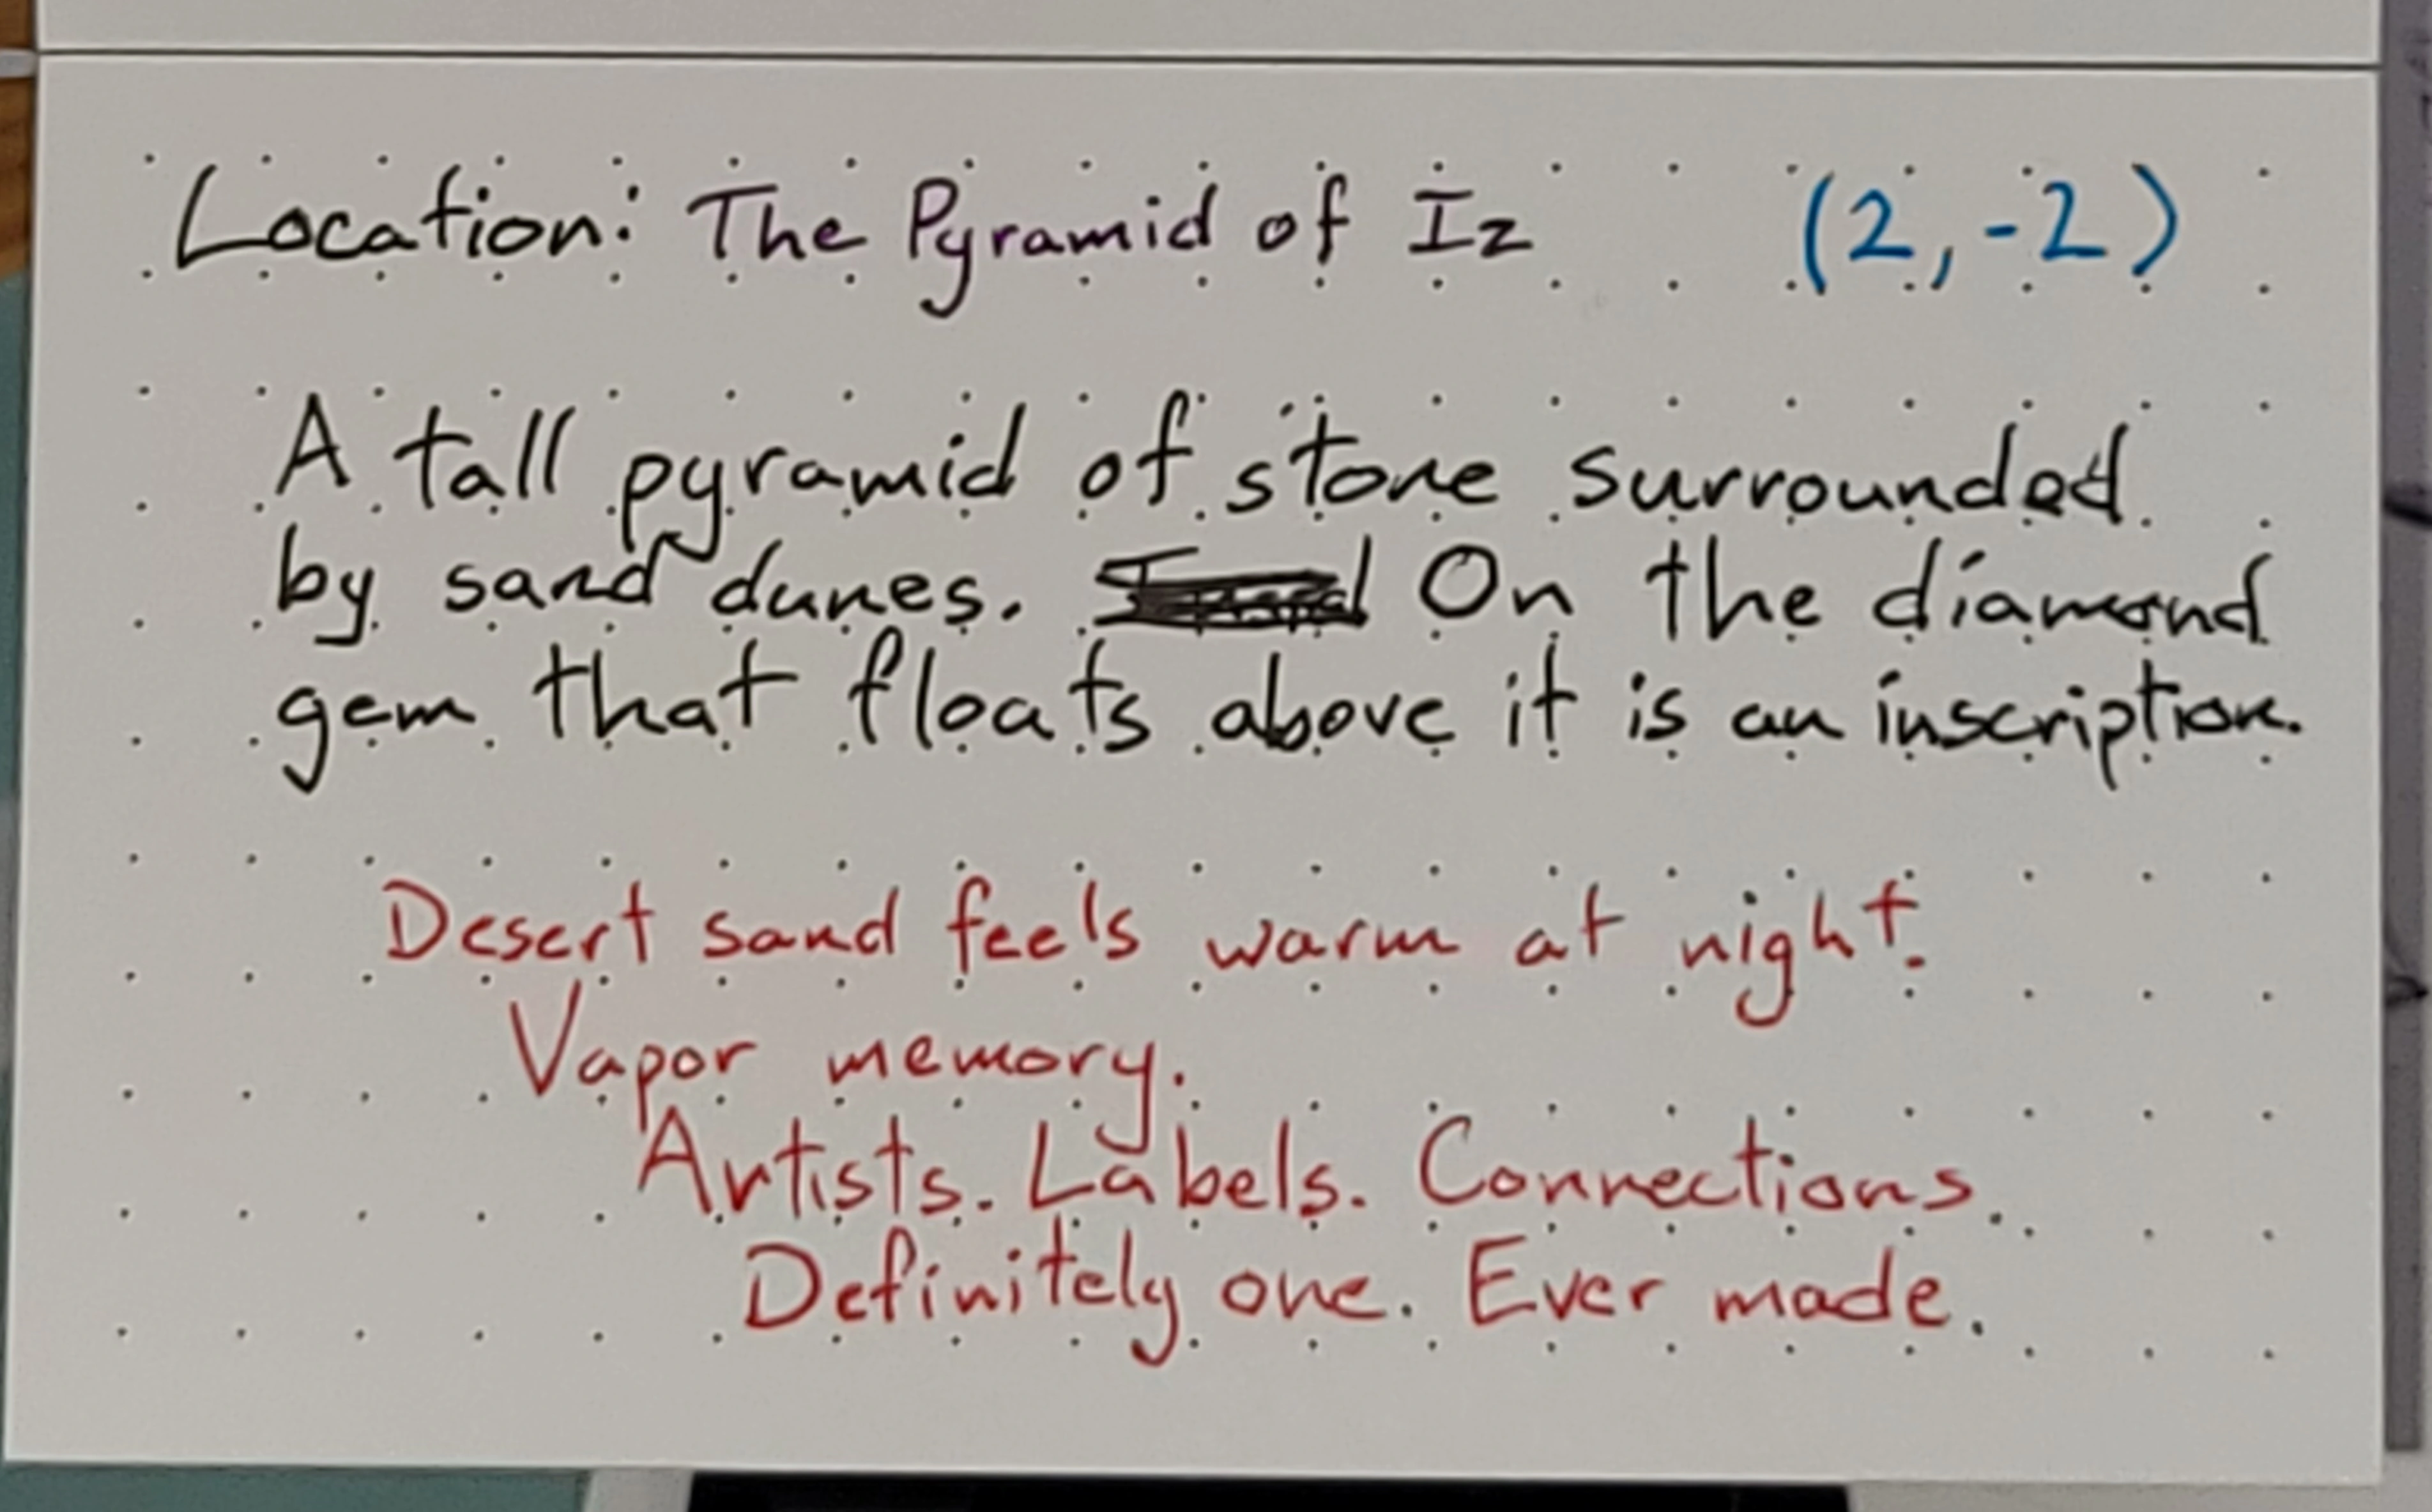 Location: The Pyramid of Iz (2,-2)
A tall pyramid of stone surrounded
by sand dunes. On the diamond
gem that floats above it is an inscription.
Desert sand feels warm at night.
Vapor memory.
Artists. Labels. Connections.
Definitely one. Ever made.